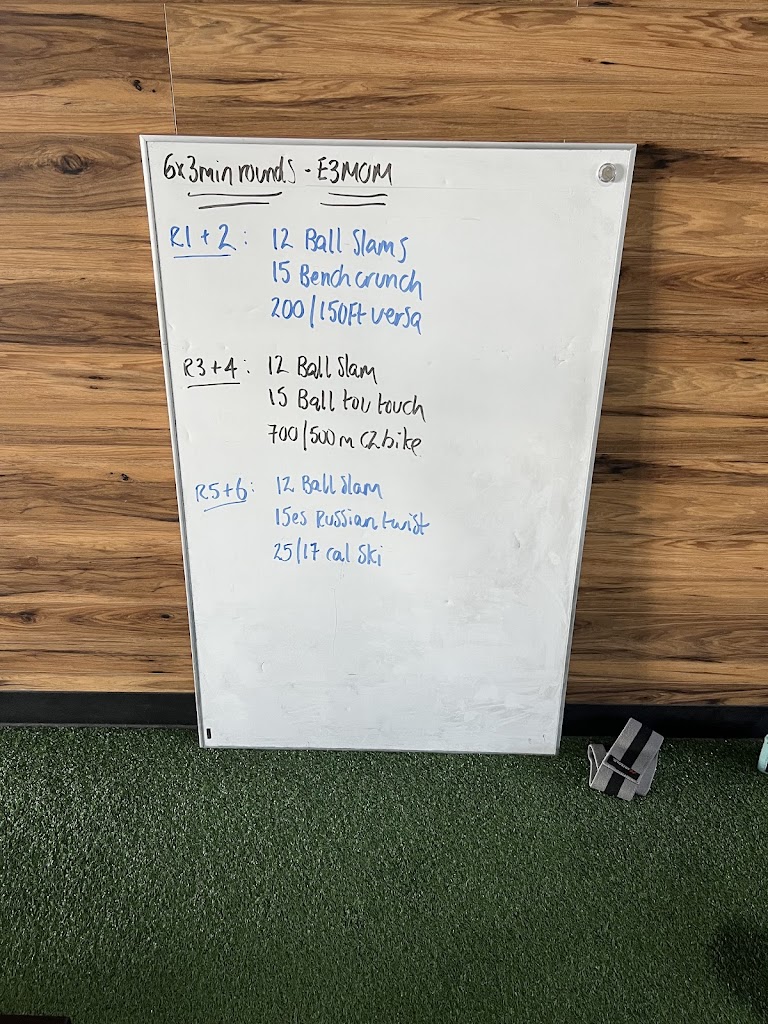 6x3min rounds - E3MOM
R1 + 2 : 12 Ball Slams
15 Bench crunch
200/150Ft versa
R3 + 4 : 12 Ball Slam
15 Ball tou touch
700/500m c2 bike
R5+6 : 12 Ball slam
15es Russian twist
25/17 cal Ski